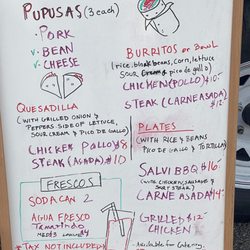 PUPUSAS (3 each)
PORK
v BEAN
v CHEESE
BURRITOS or Bowl
(rice, black beans, corn, lettuce,
SOUR CREAM & pico de gallo)
CHICKEN (POLLO) $10.
STEAK (CARNE ASADA)
$12
QUESADILLA
(WITH GRILLED ONION &
PEPPERS SIDE OF LETTUCE,
SOUR CREAM & PICO DE GALLO)
CHICKEN POLLO $8
STEAK (ASADA) $10
PLATES
(WITH RICE & BEANS
PICO DE GALLO & TORTILLA)
SALVI BBQ $16
(WITH CHICKEN, SAUSAGE &
STEAK)
CARNE ASADA $14
GRILLED $12
CHICKEN
Available for Catering
FRESCOS
SODA CAN 2
AGUA FRESCO
Tamarindo
*TAX NOT INCLUDED